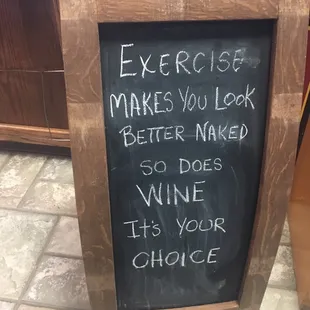 EXERCISE
MAKES YOU LOOK
BETTER NAKED
SO DOES
WINE
IT'S YOUR
CHOICE